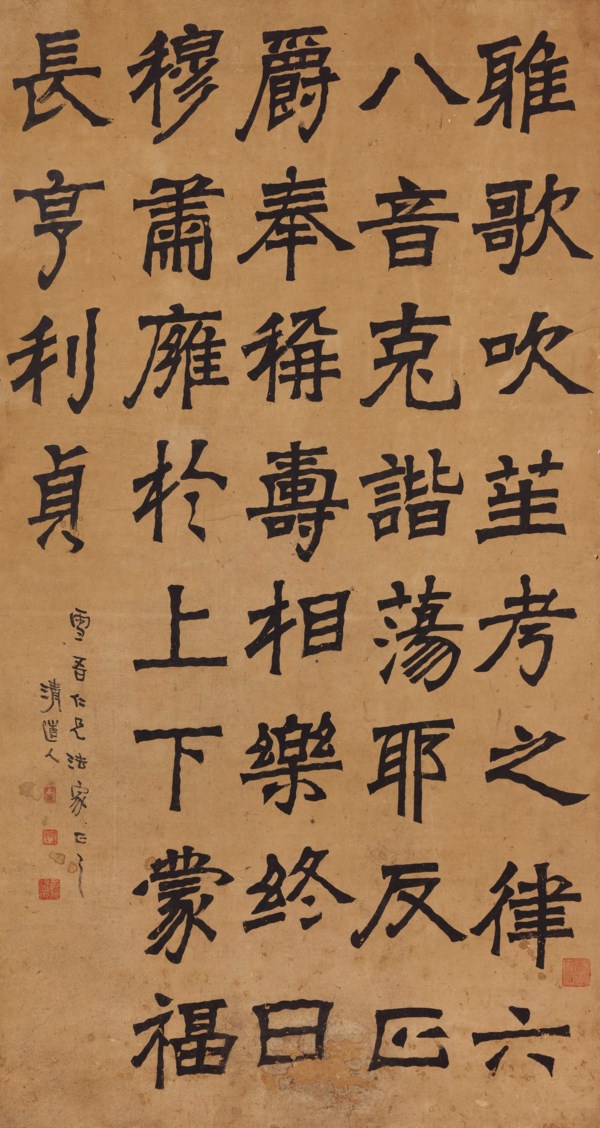 雅歌吹笙考之律六
八音克諧蕩耶反正
爵奉稱壽相樂終日
穆肅廱於上下蒙福
長亨利貞
雪吾仁兄法家正之
清道人